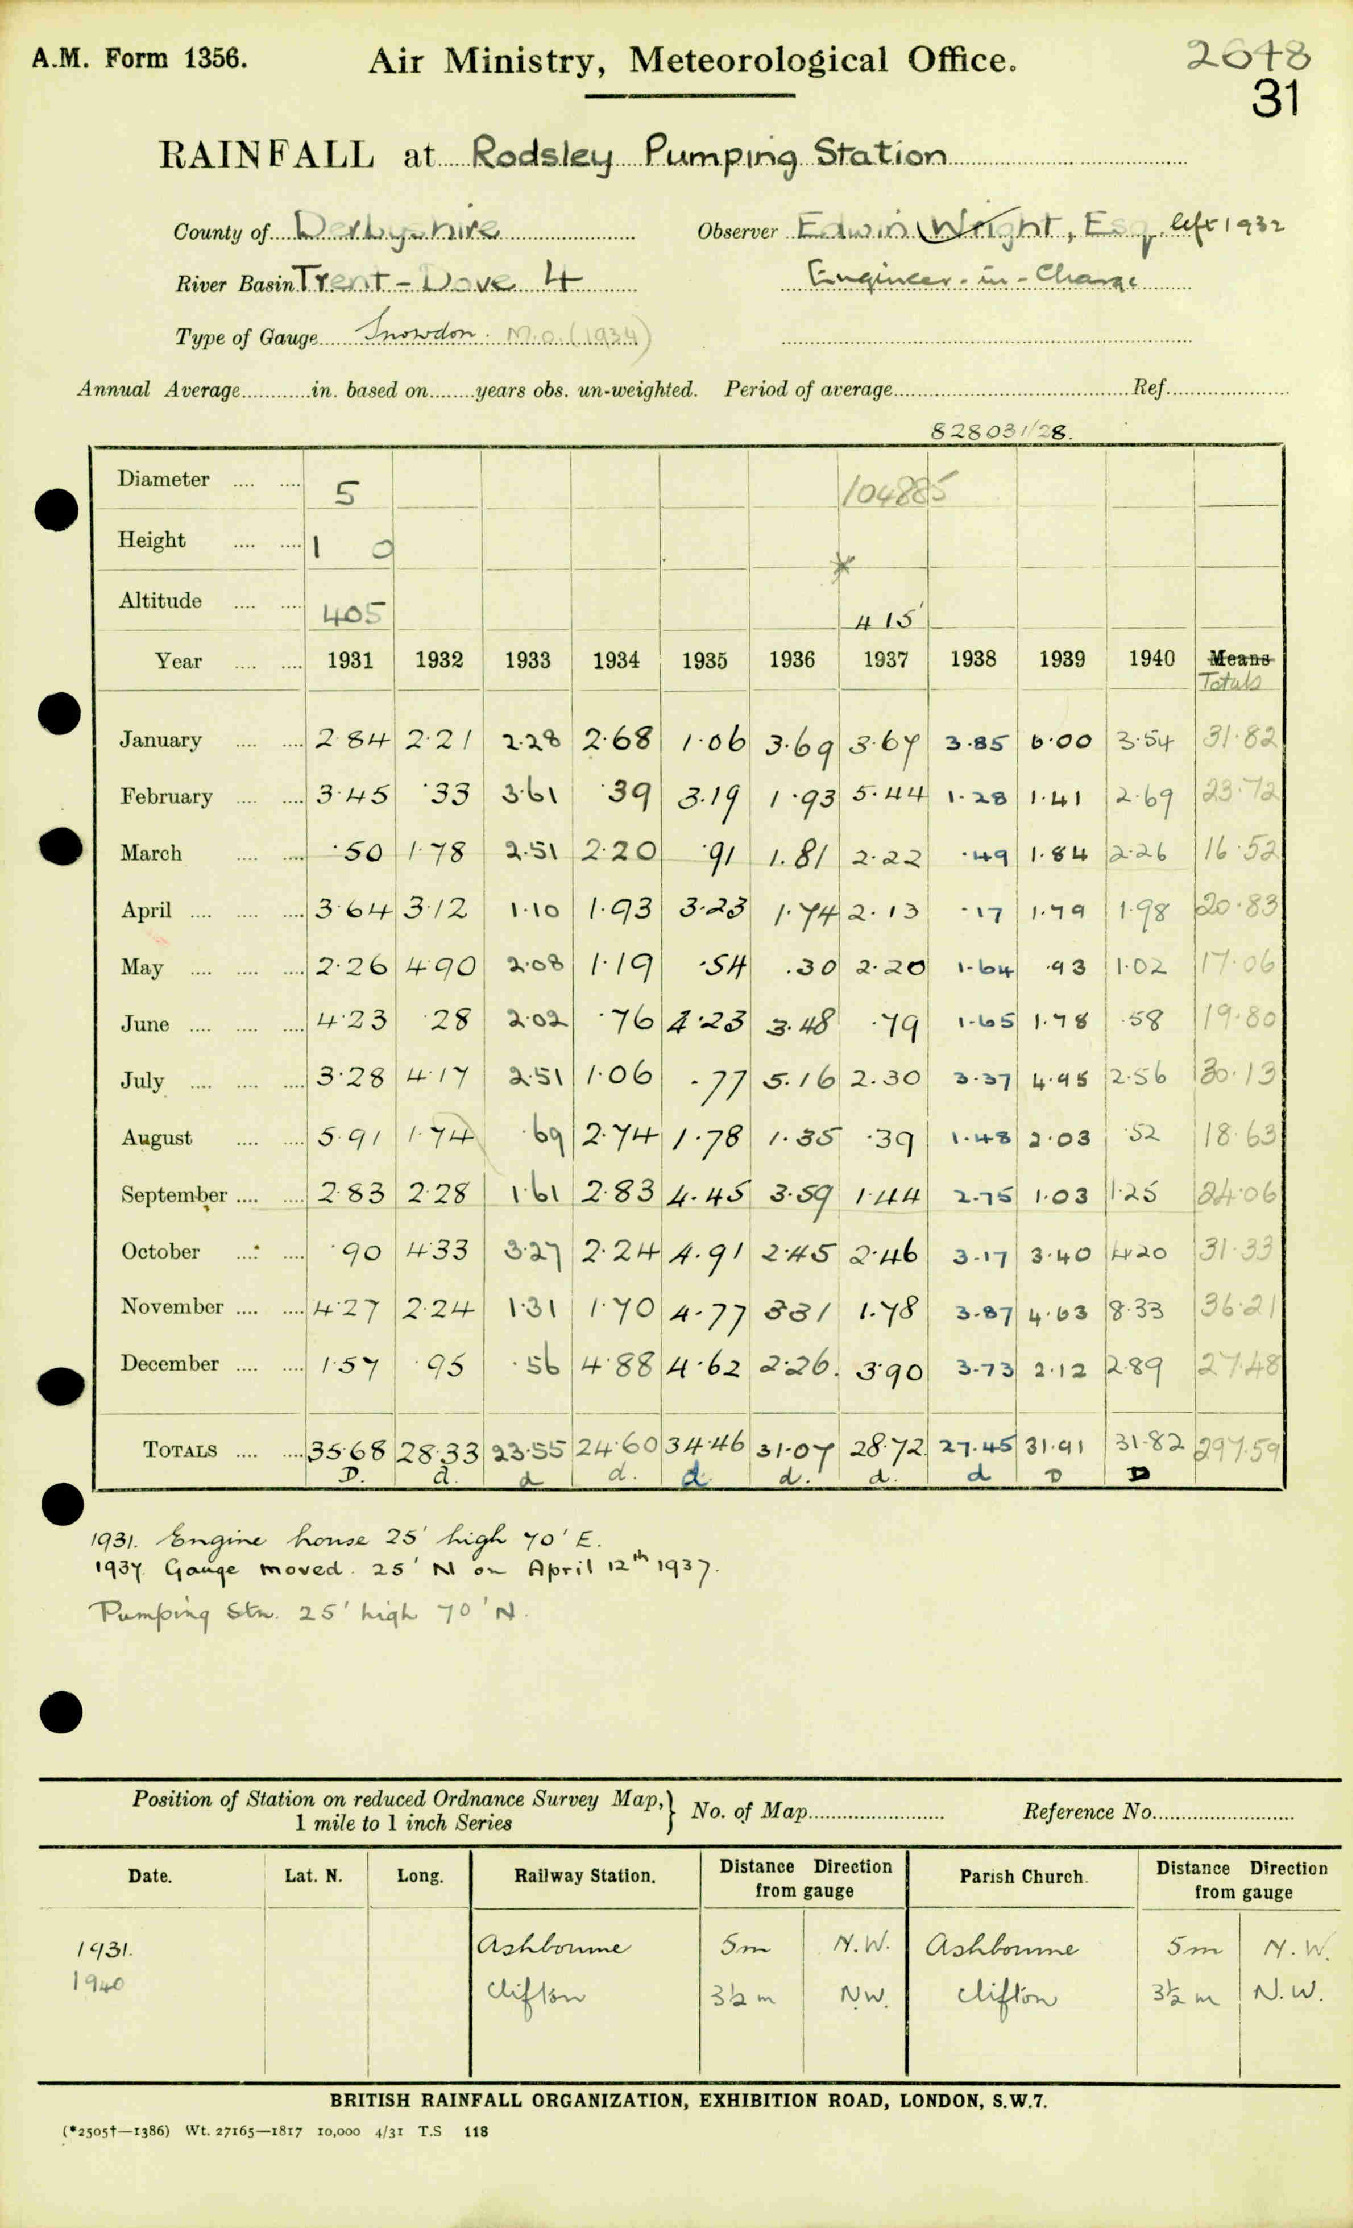 A.M. Form 1356.
Air Ministry, Meteorological Office.
2648
31
RAINFALL at Rodsley Pumping Station
County of Derbyshire Observer Edwin Wright, Esq. left 1932
River Basin Trent - Dove 4 Engineer-in-Charge
Type of Gauge Snowdon. M.O. (1934)
Annual Average............in. based on........years obs. un-weighted. Period of average............Ref............
828031/28.
Diameter .... .... 5 104885
Height .... .... 1 0 *
Altitude .... .... 405 415'
Year .... .... 1931 1932 1933 1934 1935 1936 1937 1938 1939 1940 Means
Totals
January .... .... 2.84 2.21 2.28 2.68 1.06 3.69 3.67 3.85 6.00 3.54 31.82
February .... .... 3.45 .33 3.61 .39 3.19 1.93 5.44 1.28 1.41 2.69 23.72
March .... .... .50 1.78 2.51 2.20 .91 1.81 2.22 .49 1.84 2.26 16.52
April .... .... .... 3.64 3.12 1.10 1.93 3.23 1.74 2.13 .17 1.79 1.98 20.83
May .... .... .... 2.26 4.90 2.08 1.19 .54 .30 2.20 1.64 .93 1.02 17.06
June .... .... .... 4.23 .28 2.02 .76 4.23 3.48 .79 1.65 1.78 .58 19.80
July .... .... .... 3.28 4.17 2.51 1.06 .77 5.16 2.30 3.37 4.95 2.56 30.13
August .... .... 5.91 1.74 .69 2.74 1.78 1.35 .39 1.48 2.03 .52 18.63
September .... .... 2.83 2.28 1.61 2.83 4.45 3.59 1.44 2.75 1.03 1.25 24.06
October .... .... .90 4.33 3.27 2.24 4.91 2.45 2.46 3.17 3.40 4.20 31.33
November .... .... 4.27 2.24 1.31 1.70 4.77 3.31 1.78 3.87 4.63 8.33 36.21
December .... .... 1.57 .95 .56 4.88 4.62 2.26. 3.90 3.73 2.12 2.89 27.48
TOTALS .... .... 35.68 28.33 23.55 24.60 34.46 31.07 28.72 27.45 31.91 31.82 297.59
D. d. d d. d d. d. d D D
1931. Engine house 25' high 70' E.
1937 Gauge moved. 25' N on April 12th 1937.
Pumping Stn. 25' high 70' N.
Position of Station on reduced Ordnance Survey Map, 1 mile to 1 inch Series } No. of Map............ Reference No............
Date. Lat. N. Long. Railway Station. Distance Direction from gauge Parish Church. Distance Direction from gauge
1931. Ashbourne 5m N.W. Ashbourne 5m N.W.
1940 Clifton 3½ m N.W. Clifton 3½ m N.W.
BRITISH RAINFALL ORGANIZATION, EXHIBITION ROAD, LONDON, S.W.7.
(*2505†—1386) Wt. 27165—1817 10,000 4/31 T.S 118